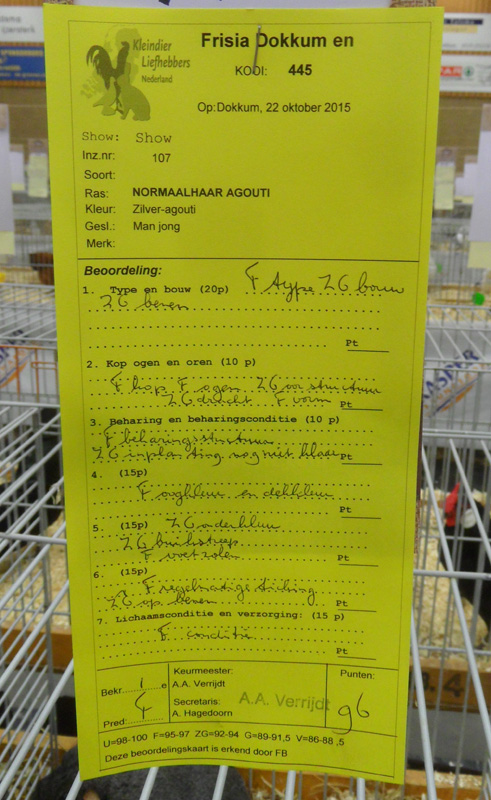 Kleindier
Liefhebbers
Nederland
Frisia Dokkum en
KOOI: 445
Op:Dokkum, 22 oktober 2015
Show: Show
Inz.nr: 107
Soort:
Ras: NORMAALHAAR AGOUTI
Kleur: Zilver-agouti
Gesl.: Man jong
Merk:
Beoordeling:
1. Type en bouw (20p) F type ZG bouw
ZG benen
Pt
2. Kop ogen en oren (10 p)
F kop F ogen ZG oorstructuur
ZG dracht F vorm Pt
3. Beharing en beharingsconditie (10 p)
F beharingsstructuur
ZG inplanting nog niet klaar Pt
4. (15p)
F oogkleur en dekkleur
Pt
5. (15p) ZG onderkleur
ZG buikstreep
F voetzolen Pt
6. (15p)
F regelmatige ticking
ZG op benen Pt
7. Lichaamsconditie en verzorging: (15 p)
F conditie
Pt
Bekr. 1 e
Pred: F
Keurmeester:
A.A. Verrijdt
Secretaris:
A. Hagedoorn
A.A. Verrijdt
Punten:
96
U=98-100 F=95-97 ZG=92-94 G=89-91,5 V=86-88 ,5
Deze beoordelingskaart is erkend door FB